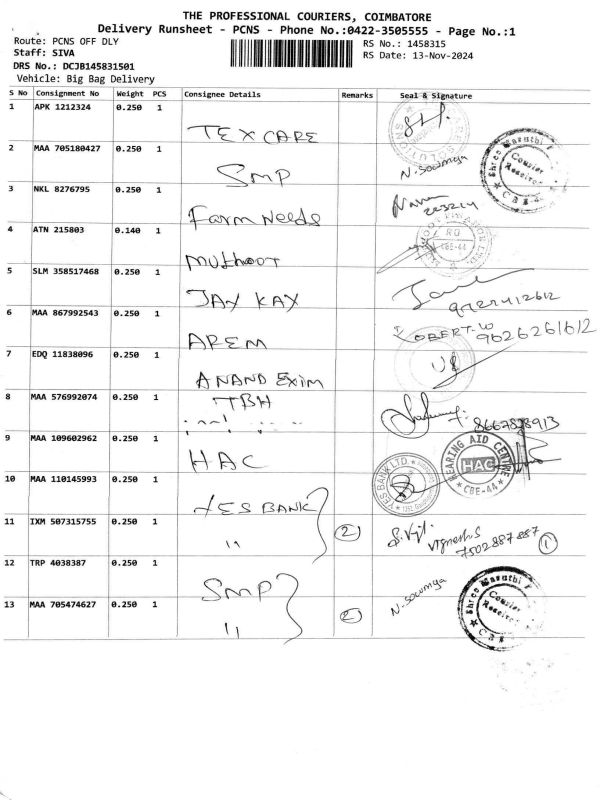 THE PROFESSIONAL COURIERS, COIMBATORE
Delivery Runsheet - PCNS - Phone No.:0422-3505555 - Page No.:1
Route: PCNS OFF DLY
RS No.: 1458315
Staff: SIVA
RS Date: 13-Nov-2024
DRS No.: DCJB145831501
Vehicle: Big Bag Delivery
S No Consignment No Weight PCS Consignee Details Remarks Seal & Signature
1 APK 1212324 0.250 1 TEXCARE
2 MAA 705180427 0.250 1 SMP N. Sowmya
Shree Maruthi Courier Received CBE-4
3 NKL 8276795 0.250 1 Farm Needs
4 ATN 215803 0.140 1 Muthoot
CBE-44
5 SLM 358517468 0.250 1 JAY KAY
6 MAA 867992543 0.250 1 AREM ROBERT.W 9626261612
7 EDQ 11838096 0.250 1 ANAND EXIM
8 MAA 576992074 0.250 1 TBH 8667828913
9 MAA 109602962 0.250 1 HAC
HEARING AID CENTRE HAC CBE-44
10 MAA 110145993 0.250 1 YES BANK
YES BANK LTD.
11 IXM 507315755 0.250 1 " 2 Vignesh S 7502887887 1
12 TRP 4038387 0.250 1 SMP
13 MAA 705474627 0.250 1 " 2 N. Sowmya
Shree Maruthi Courier Received